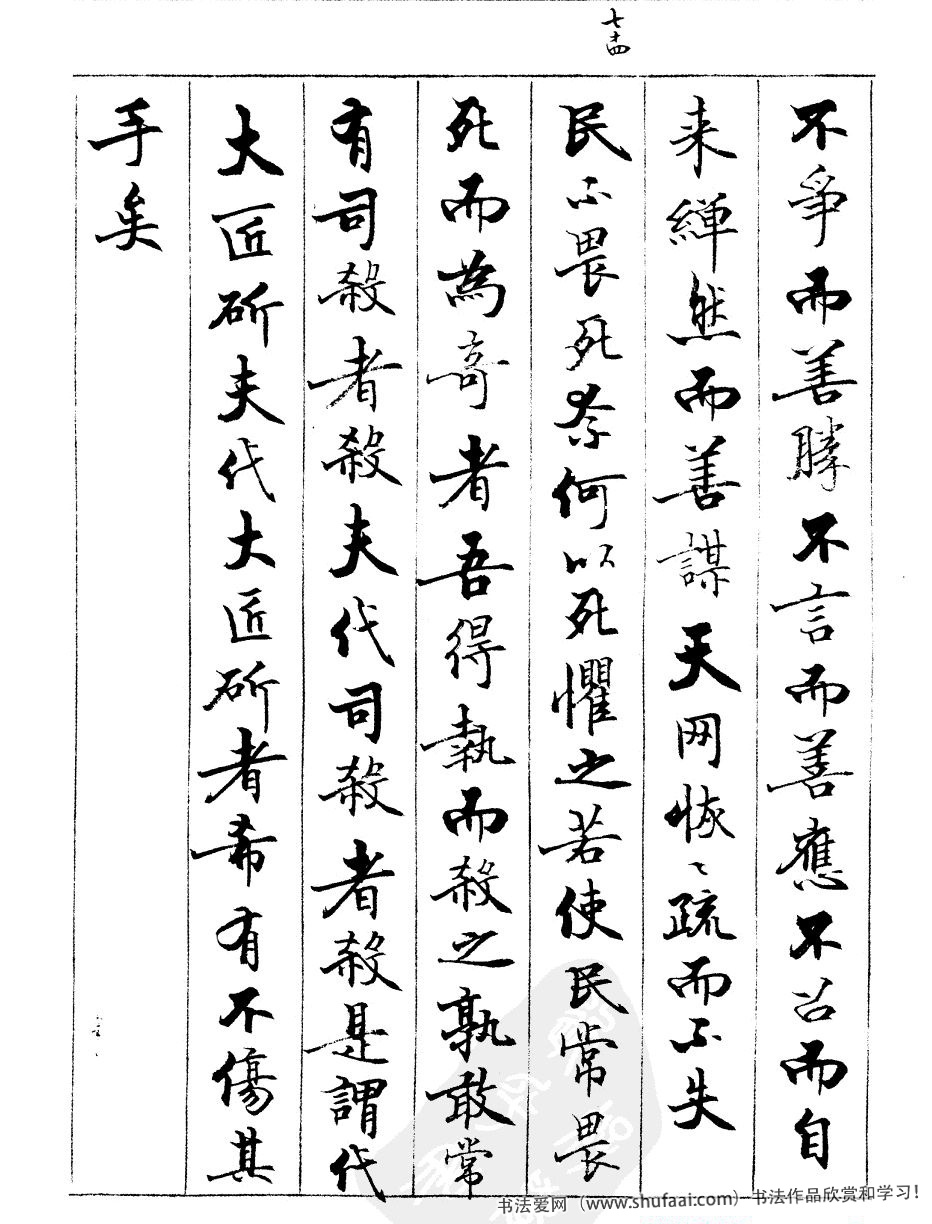 七十四
不爭而善勝不言而善應不召而自
来繟然而善謀天网恢〻疏而不失
民不畏死奈何以死懼之若使民常畏
死而為奇者吾得執而殺之孰敢常
有司殺者殺夫代司殺者殺是謂代
大匠斫夫代大匠斫者希有不傷其
手矣
书法爱网（www.shufaai.com）-书法作品欣赏和学习！